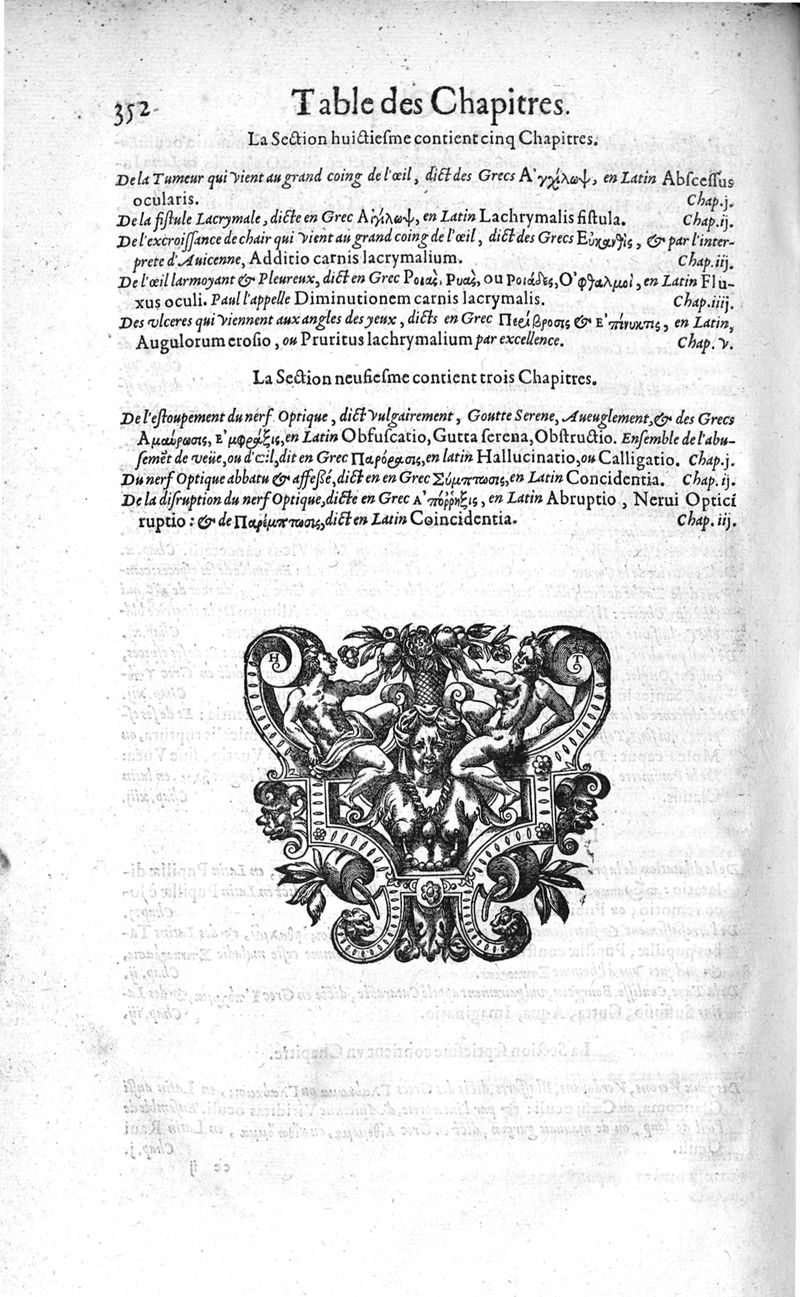 352
Table des Chapitres.
La Section huictiesme contient cinq Chapitres.
De la Tumeur qui vient au grand coing de l'œil, dict des Grecs Α'γχίλωψ, en Latin Abscessus
ocularis. Chap. j.
De la fistule Lacrymale, dicte en Grec Αἰγίλωψ, en Latin Lachrymalis fistula. Chap. ij.
De l'excroissance de chair qui vient au grand coing de l'œil, dict des Grecs Εὐκανθὶς, & par l'inter-
prete d'Auicenne, Additio carnis lacrymalium. Chap. iij.
De l'œil larmoyant & Pleureux, dict en Grec Ροιὰς, Ρυὰς, ou Ροιάδες, Ο'φθαλμοὶ, en Latin Flu-
xus oculi. Paul l'appelle Diminutionem carnis lacrymalis. Chap. iiij.
Des vlceres qui viennent aux angles des yeux, dicts en Grec Περίβρωσις & Ε'πίνυκτις, en Latin,
Augulorum erosio, ou Pruritus lachrymalium par excellence. Chap. v.
La Section neufiesme contient trois Chapitres.
De l'estoupement du nerf Optique, dict vulgairement, Goutte Serene, Aueuglement, & des Grecs
Αμαύρωσις, Ε'μφραξις, en Latin Obfuscatio, Gutta serena, Obstructio. Ensemble de l'abu-
semēt de veüe, ou d'œil, dit en Grec Παρόρασις, en latin Hallucinatio, ou Calligatio. Chap. j.
Du nerf Optique abbatu & affessé, dict en en Grec Σύμπτωσις, en Latin Concidentia. Chap. ij.
De la disruption du nerf Optique, dicte en Grec Α'πόρρηξις, en Latin Abruptio, Nerui Optici
ruptio: & de Παρέμπτωσις, dict en Latin Coincidentia. Chap. iij.
H T